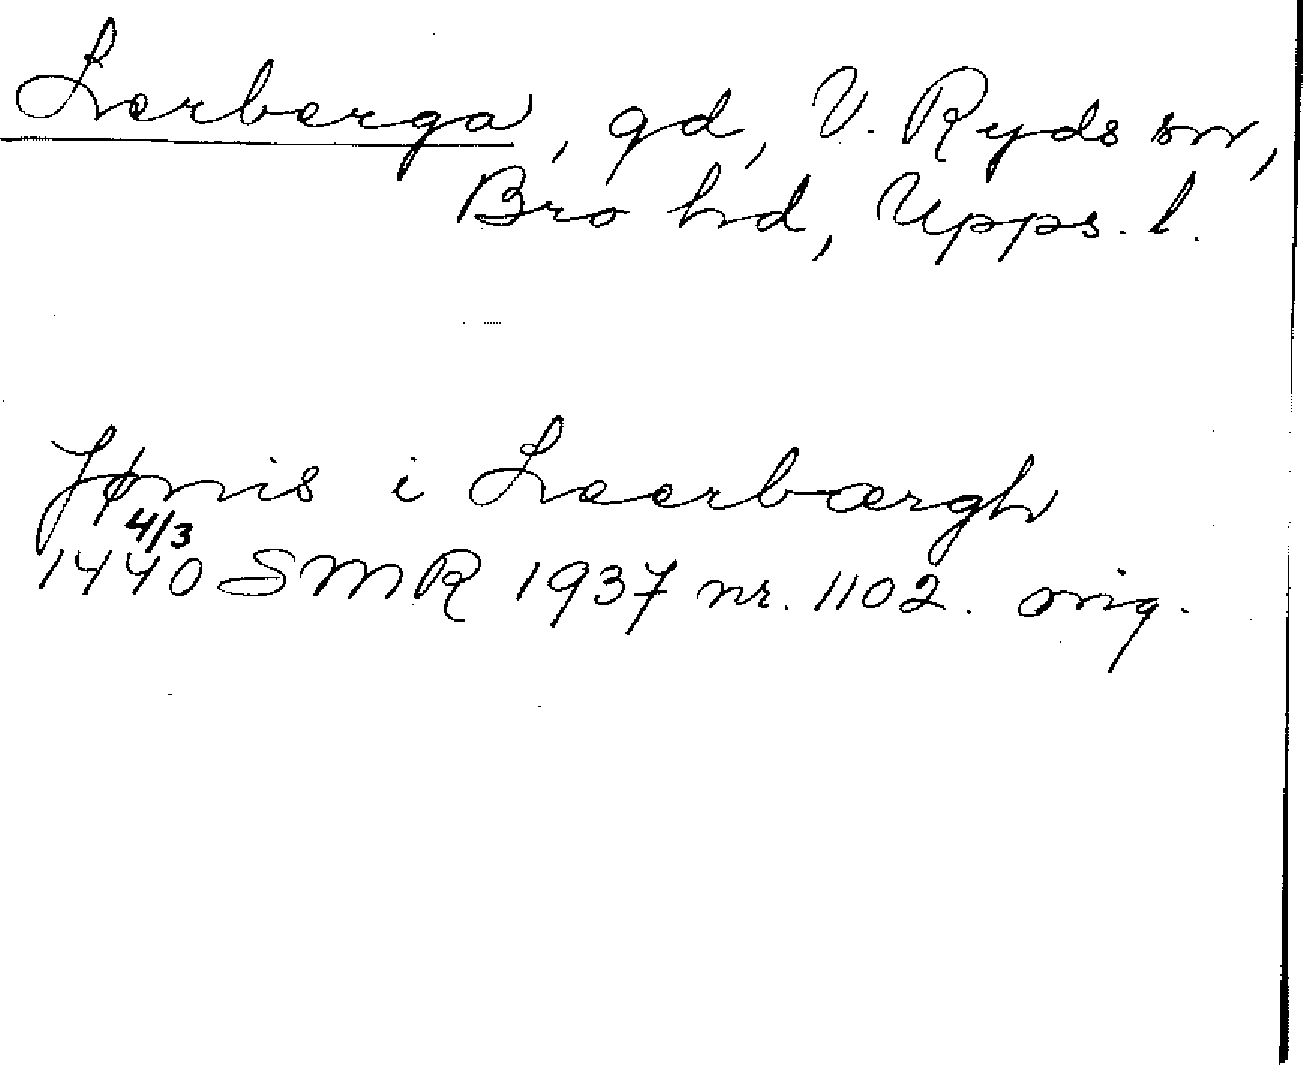 Lerberga, gd, V. Ryds sn,
Bro hd, Upps. l.
Jønis i Leerbærgh
4/3
1440 SMR 1937 nr. 1102. orig.